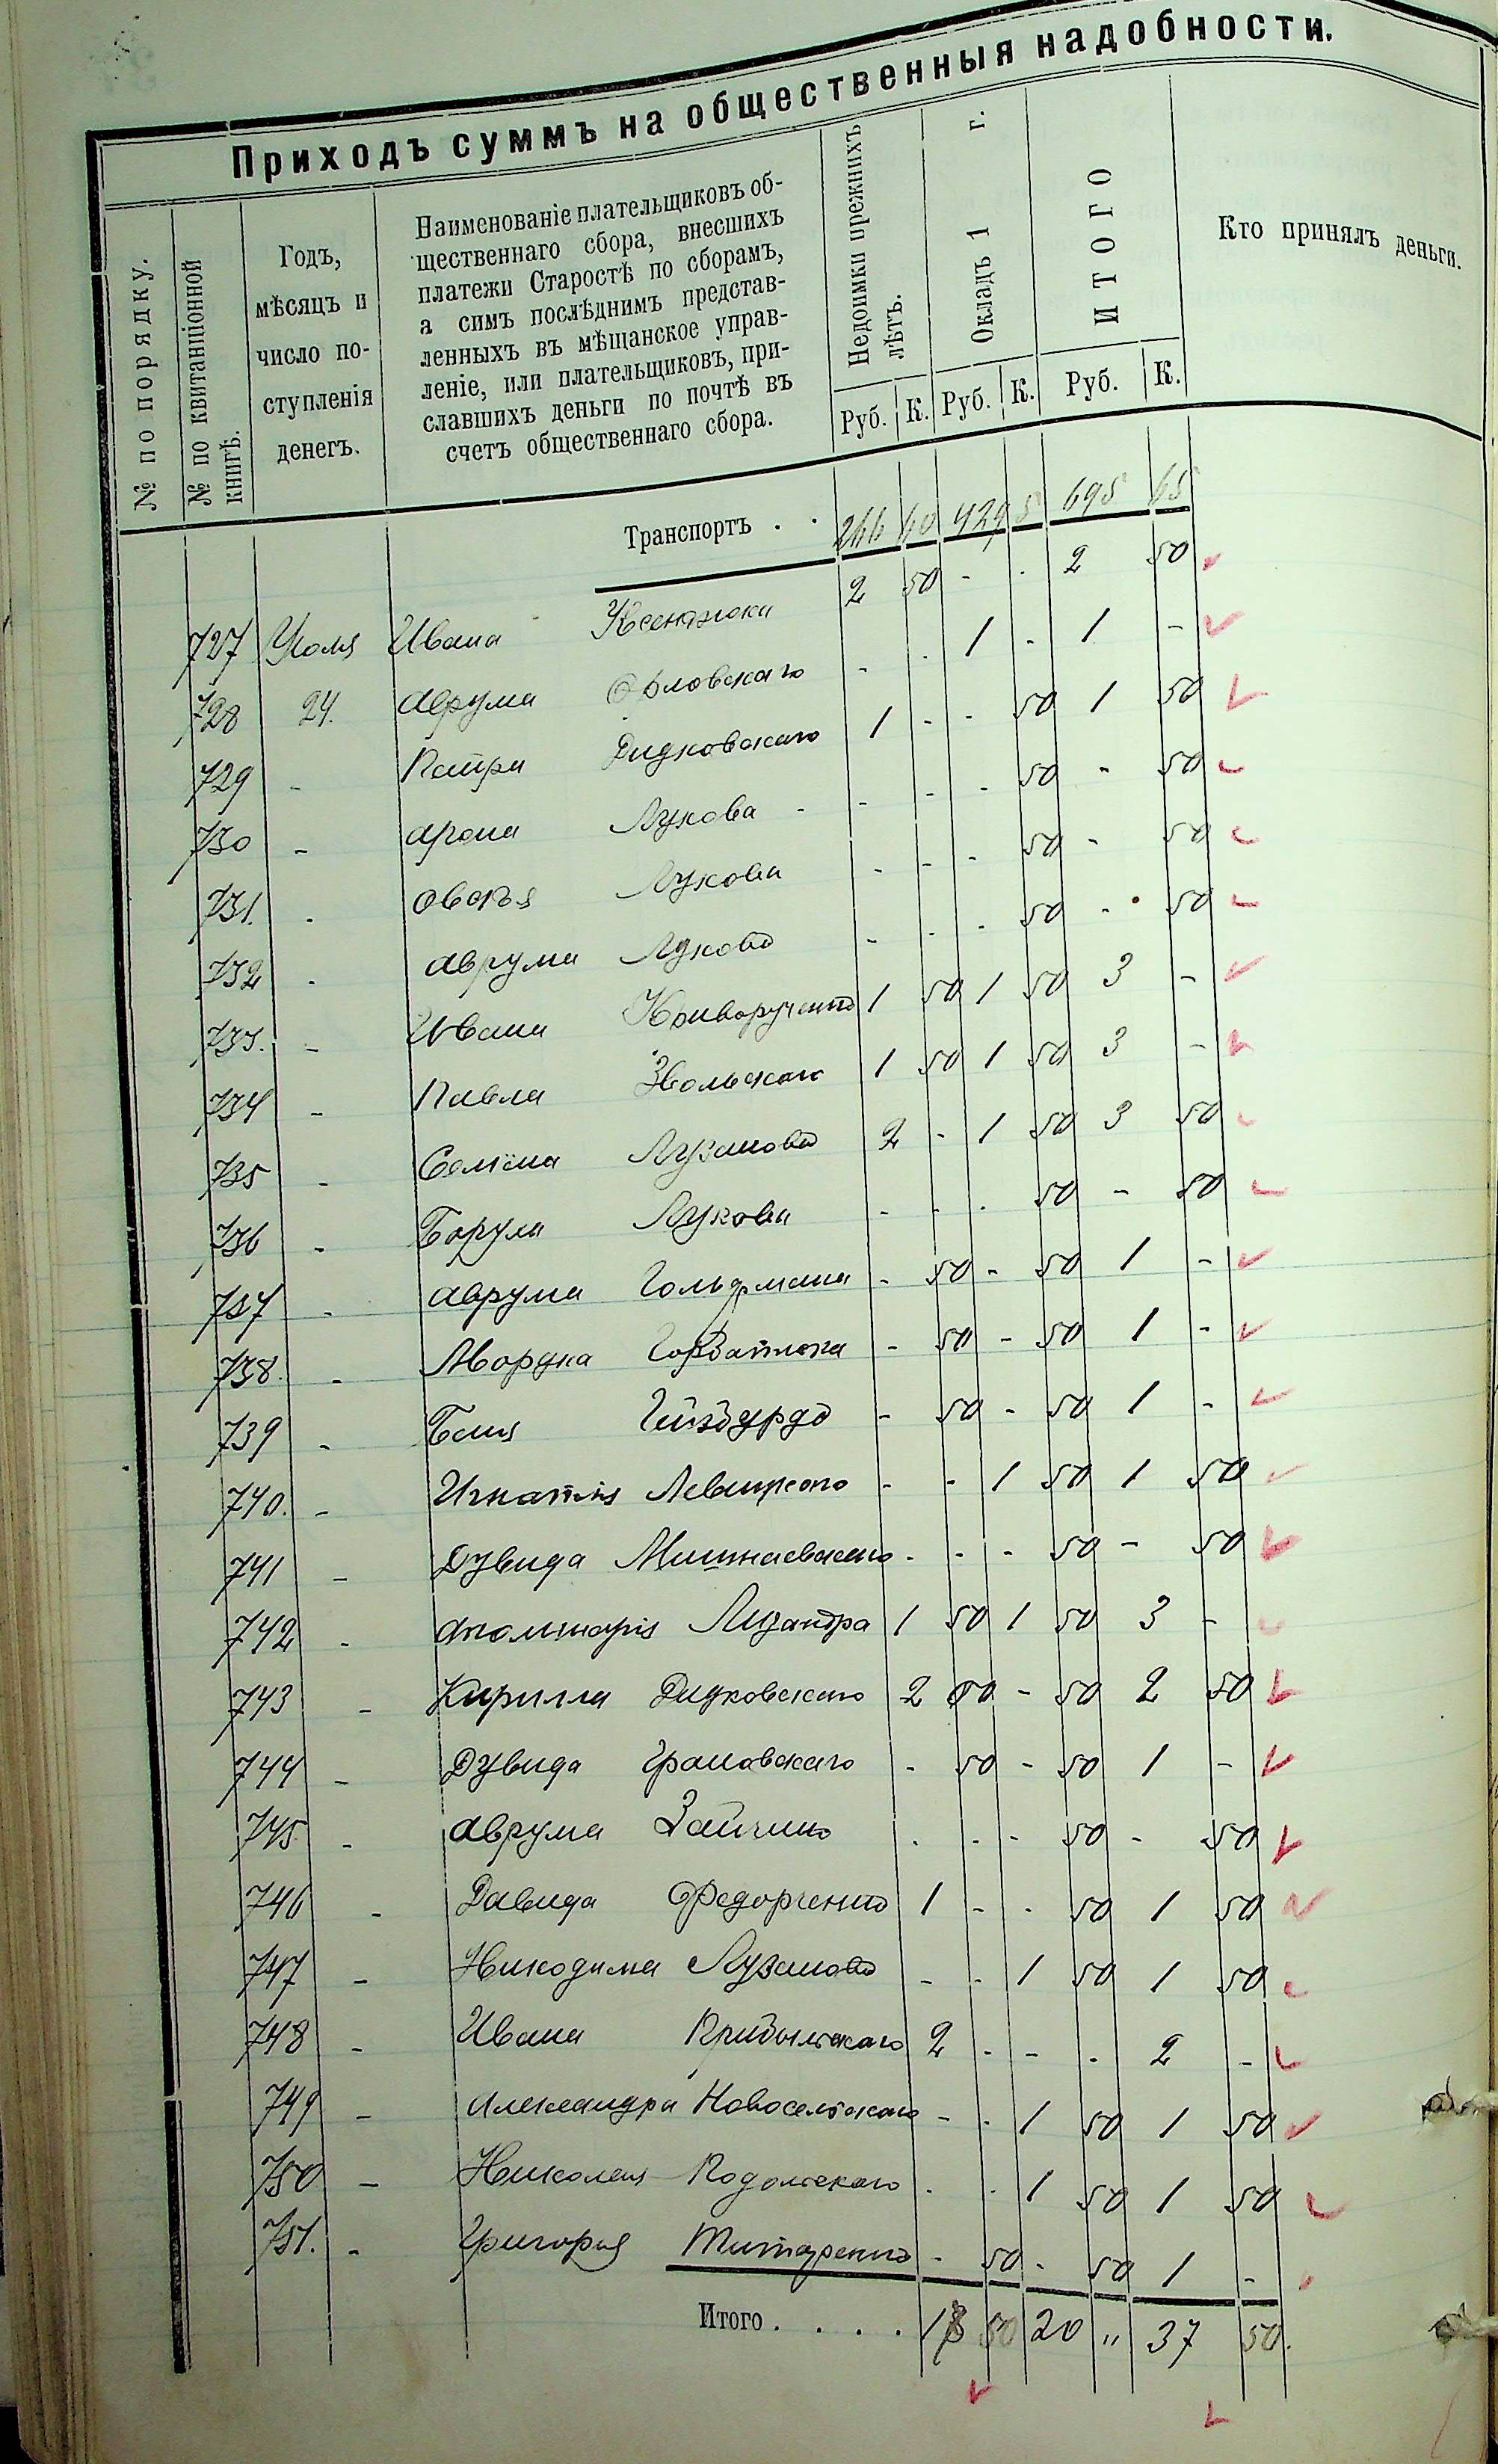 Приходъ суммъ на общественныя надобности.
№ по порядку.
№ по квитанціонной
книгѣ.
Годъ,
мѣсяцъ и
число по-
ступленія
денегъ.
Наименованіе плательщиковъ об-
щественнаго сбора, внесшихъ
платежи Старостѣ по сборамъ,
а симъ послѣднимъ представ-
ленныхъ въ мѣщанское управ-
леніе, или плательщиковъ, при-
славшихъ деньги по почтѣ въ
счетъ общественнаго сбора.
Недоимки прежнихъ
лѣтъ.
Окладъ 1 г.
ИТОГО
Кто принялъ деньги.
Руб. К. Руб. К. Руб. К.
Транспортъ . . 266 60 429 5 695 65
727 Іюля Ивана 2 50 - - 2 50
728 24. Аврума Орловскаго - - 1 - 1 -
729 - Петра Дидковскаго 1 - - 50 1 50
730 - Арона Лукова - - - - 50 - 50
731. - Овсѣя Лукова - - - 50 - 50
732 - Аврума Лукова - - - 50 - 50
733. - Ивана Криворученко 1 50 1 50 3 -
734 - Павла Звольскаго 1 50 1 50 3 -
735 - Семена Лузанова 2 - 1 50 3 50
736 - Борула Лукова - - - 50 - 50
737 - Аврума Гольдмана - 50 - 50 1 -
738. - Мордка Горбатюка - 50 - 50 1 -
739 - Гинзбурга - 50 - 50 1 -
740. - Игнатія Левицкого - - 1 50 1 50
741 - Дувида Мишнаевскаго - - - 50 - 50
742 - Аполинарія Лизандра 1 50 1 50 3 -
743 - Кирилла Дидковскаго 2 00 - 50 2 50
744 - Дувида Грановскаго - 50 - 50 1 -
745 - Аврума Зайчика - - - 50 - 50
746 - Давида Федорченко 1 - - 50 1 50
747 - Никодима Лузанова - - 1 50 1 50
748 - Ивана Прибыльскаго 2 - - - 2 -
749 - Александра Новосельскаго - - 1 50 1 50
750 - Николая Подольскаго - - 1 50 1 50
751. - Григорія Титаренко - 50 - 50 1 -
Итого . . . . 50 20 " 37 50.